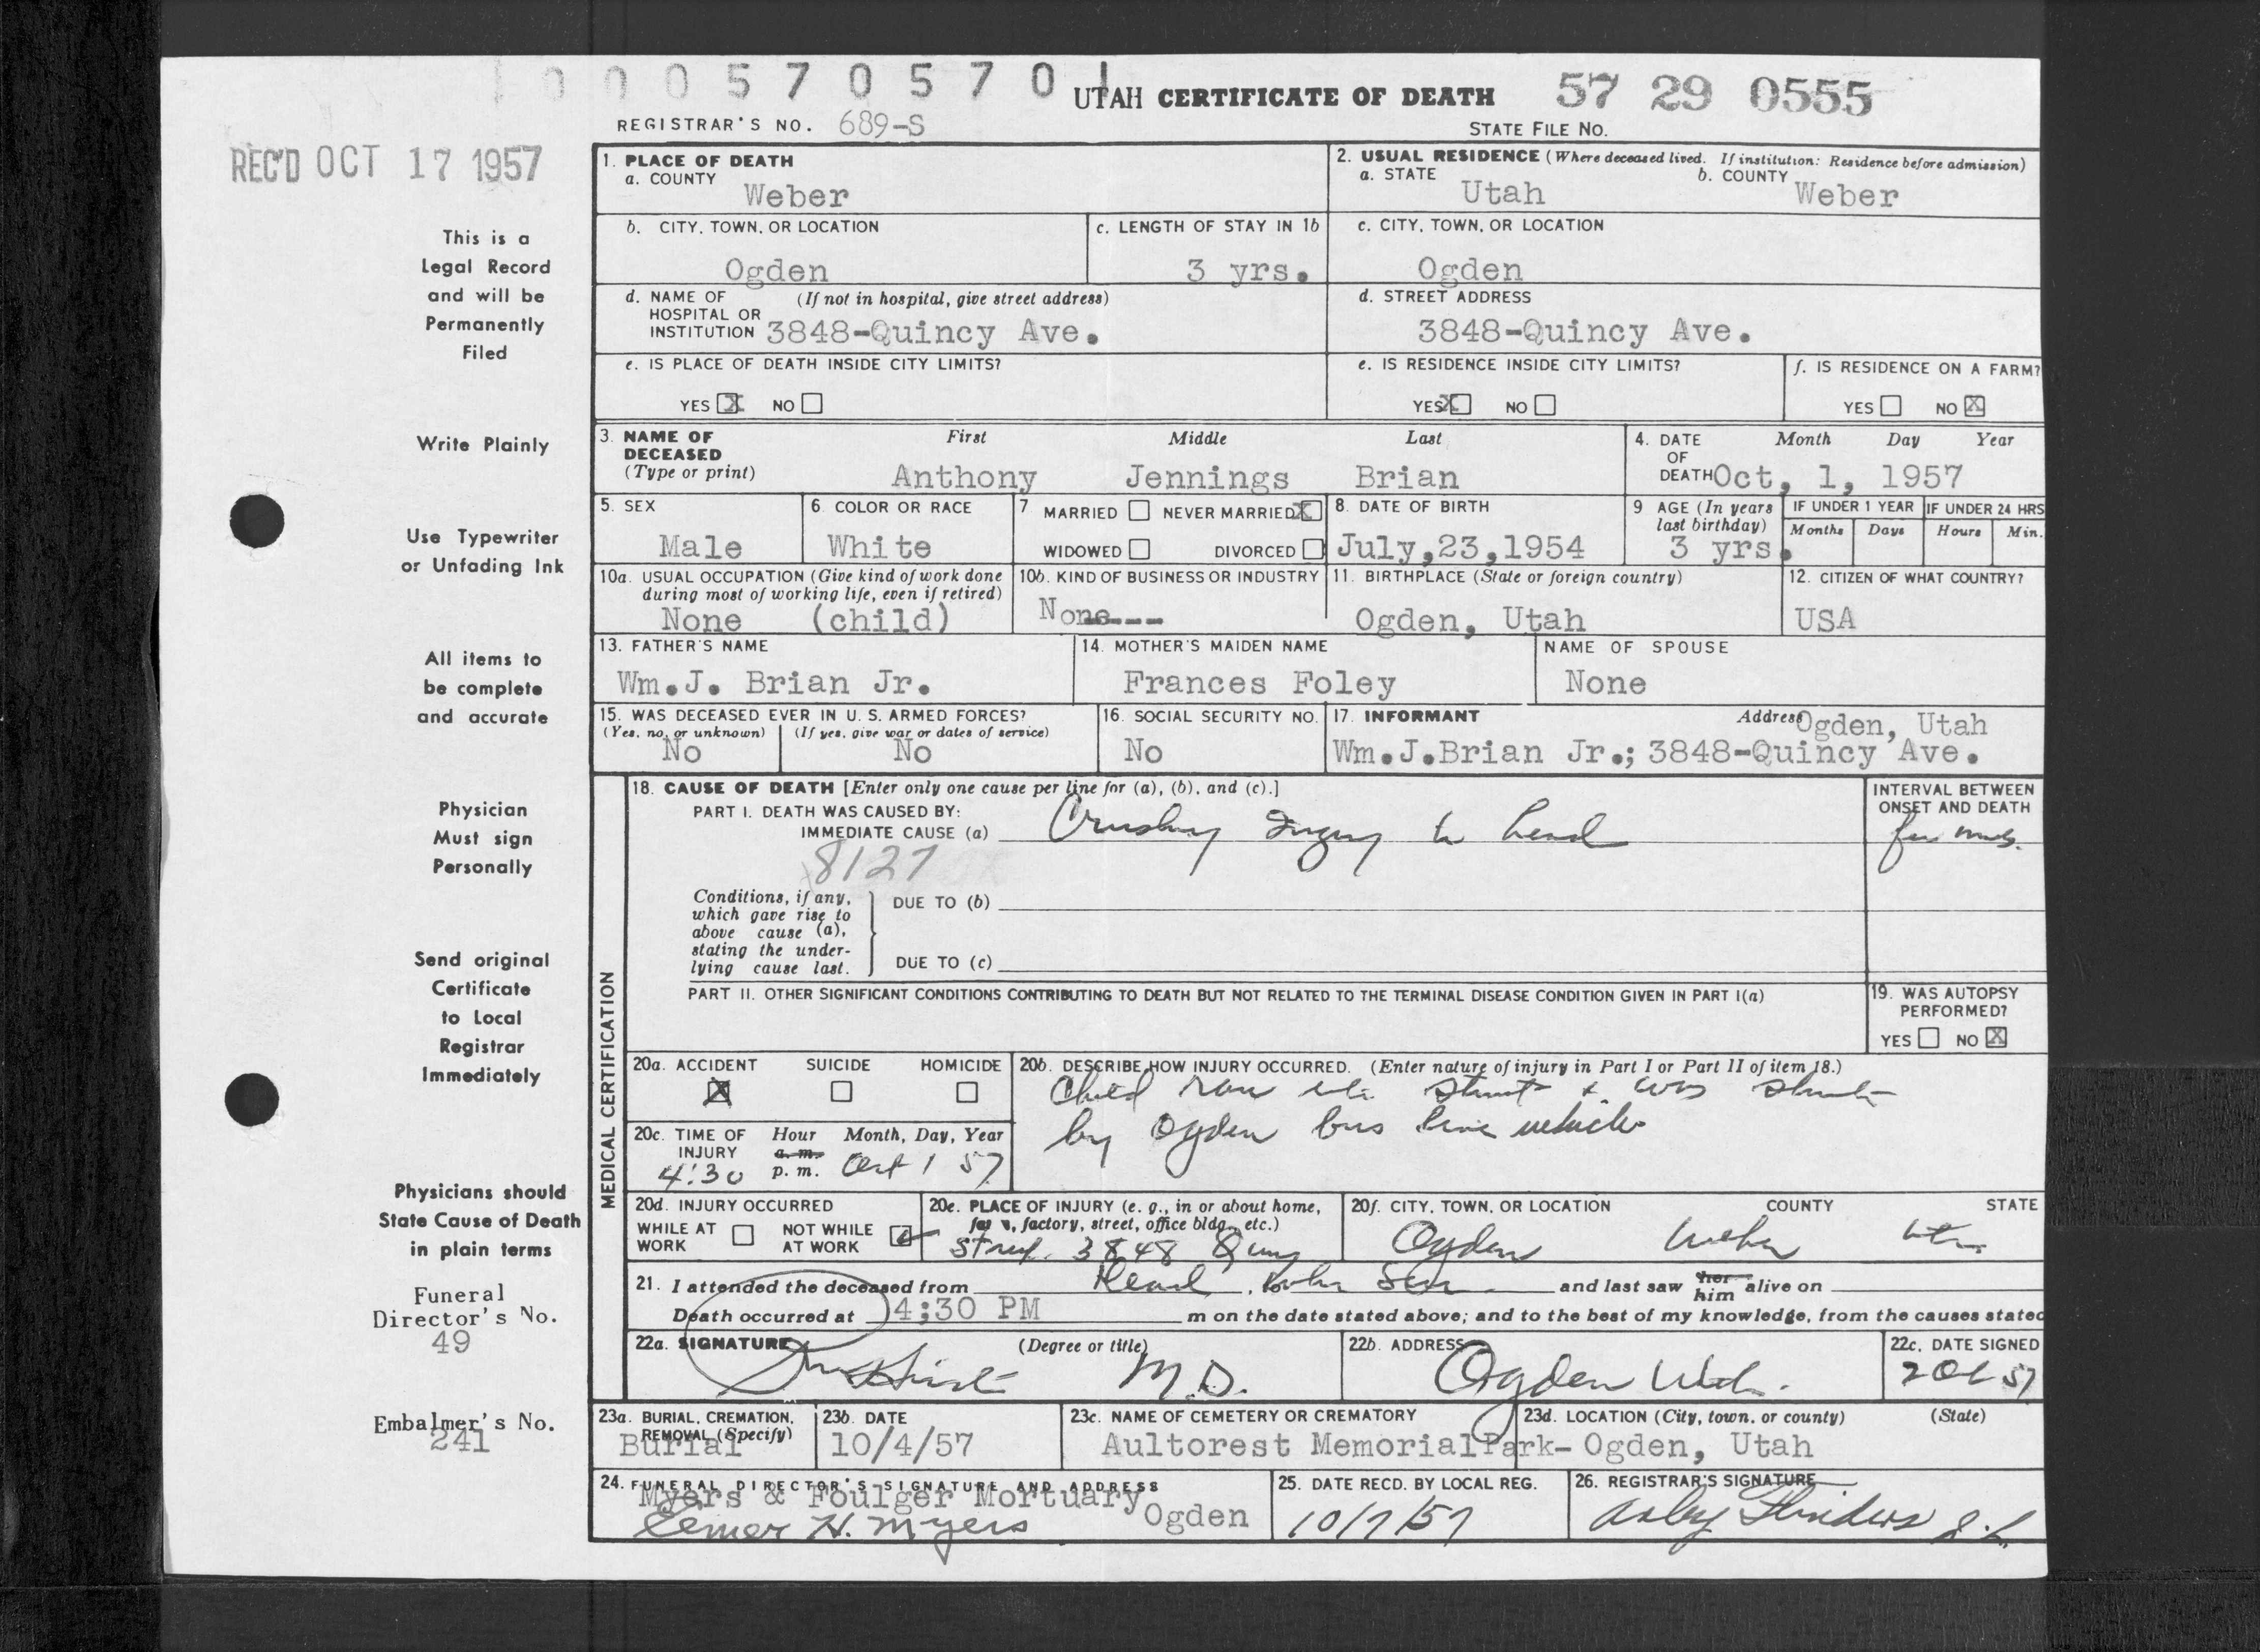 0 0 0 5 7 0 5 7 0
UTAH CERTIFICATE OF DEATH 57 29 0555
REGISTRAR'S NO. 689-S STATE FILE NO.
REC'D OCT 17 1957
This is a
Legal Record
and will be
Permanently
Filed
Write Plainly
Use Typewriter
or Unfading Ink
All items to
be complete
and accurate
Physician
Must sign
Personally
Send original
Certificate
to Local
Registrar
Immediately
Physicians should
State Cause of Death
in plain terms
Funeral
Director's No.
49
Embalmer's No.
241
1. PLACE OF DEATH
a. COUNTY
Weber
2. USUAL RESIDENCE (Where deceased lived. If institution: Residence before admission)
a. STATE b. COUNTY
Utah Weber
b. CITY, TOWN, OR LOCATION
Ogden
c. LENGTH OF STAY IN 1b
3 yrs.
c. CITY, TOWN, OR LOCATION
Ogden
d. NAME OF (If not in hospital, give street address)
HOSPITAL OR
INSTITUTION 3848-Quincy Ave.
d. STREET ADDRESS
3848-Quincy Ave.
e. IS PLACE OF DEATH INSIDE CITY LIMITS?
YES X NO
e. IS RESIDENCE INSIDE CITY LIMITS?
YES X NO
f. IS RESIDENCE ON A FARM?
YES NO X
3. NAME OF First Middle Last
DECEASED
(Type or print) Anthony Jennings Brian
4. DATE Month Day Year
OF
DEATH Oct, 1, 1957
5. SEX
Male
6. COLOR OR RACE
White
7 MARRIED NEVER MARRIED X
WIDOWED DIVORCED
8. DATE OF BIRTH
July,23,1954
9 AGE (In years
last birthday)
3 yrs.
IF UNDER 1 YEAR
Months Days
IF UNDER 24 HRS
Hours Min.
10a. USUAL OCCUPATION (Give kind of work done
during most of working life, even if retired)
None (child)
10b. KIND OF BUSINESS OR INDUSTRY
None---
11. BIRTHPLACE (State or foreign country)
Ogden, Utah
12. CITIZEN OF WHAT COUNTRY?
USA
13. FATHER'S NAME
Wm.J. Brian Jr.
14. MOTHER'S MAIDEN NAME
Frances Foley
NAME OF SPOUSE
None
15. WAS DECEASED EVER IN U. S. ARMED FORCES?
(Yes, no, or unknown) (If yes, give war or dates of service)
No No
16. SOCIAL SECURITY NO.
No
17. INFORMANT Address Ogden, Utah
Wm.J.Brian Jr.; 3848-Quincy Ave.
MEDICAL CERTIFICATION
18. CAUSE OF DEATH [Enter only one cause per line for (a), (b), and (c).]
PART I. DEATH WAS CAUSED BY:
IMMEDIATE CAUSE (a) Crushing Injury to head
8127
INTERVAL BETWEEN
ONSET AND DEATH
few mins.
Conditions, if any,
which gave rise to
above cause (a),
stating the under-
lying cause last.
DUE TO (b)
DUE TO (c)
PART II. OTHER SIGNIFICANT CONDITIONS CONTRIBUTING TO DEATH BUT NOT RELATED TO THE TERMINAL DISEASE CONDITION GIVEN IN PART I(a)
19. WAS AUTOPSY
PERFORMED?
YES NO X
20a. ACCIDENT SUICIDE HOMICIDE
X
20b. DESCRIBE HOW INJURY OCCURRED. (Enter nature of injury in Part I or Part II of item 18.)
Child ran into street & was struck
by Ogden bus line vehicle
20c. TIME OF Hour Month, Day, Year
INJURY a. m.
4:30 p. m. Oct 1 57
20d. INJURY OCCURRED
WHILE AT NOT WHILE
WORK AT WORK
20e. PLACE OF INJURY (e. g., in or about home,
farm, factory, street, office bldg., etc.)
Street. 3848 Quincy
20f. CITY, TOWN, OR LOCATION COUNTY STATE
Ogden Weber Utah
21. I attended the deceased from Dead when Seen and last saw her him alive on
Death occurred at 4;30 PM m on the date stated above; and to the best of my knowledge, from the causes stated
22a. SIGNATURE (Degree or title)
M.D.
22b. ADDRESS
Ogden Utah.
22c. DATE SIGNED
2 Oct 57
23a. BURIAL, CREMATION,
REMOVAL (Specify)
Burial
23b. DATE
10/4/57
23c. NAME OF CEMETERY OR CREMATORY
Aultorest Memorial Park-
23d. LOCATION (City, town, or county) (State)
Ogden, Utah
24. FUNERAL DIRECTOR'S SIGNATURE AND ADDRESS
Myers & Foulger Mortuary
Elmer H. Myers Ogden
25. DATE RECD. BY LOCAL REG.
10/7/57
26. REGISTRAR'S SIGNATURE
Flinders